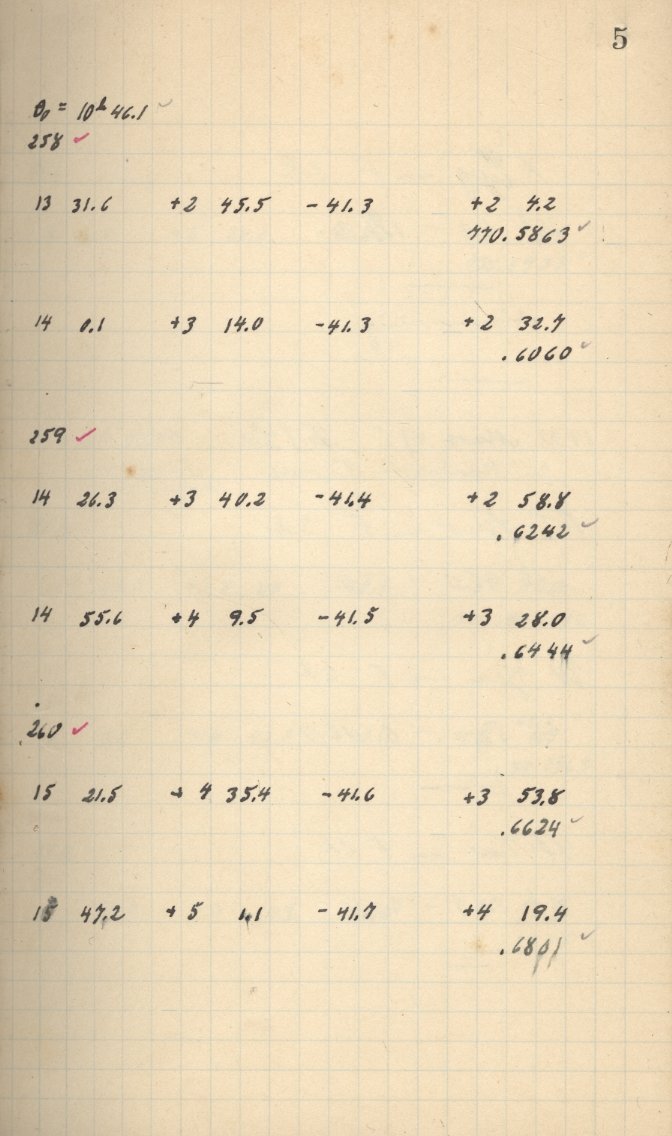 5
θ₀ = 10ʰ 46.1 ✓
258 ✓
13 31.6 +2 45.5 -41.3 +2 4.2
770.5863 ✓
14 0.1 +3 14.0 -41.3 +2 32.7
.6060 ✓
259 ✓
14 26.3 +3 40.2 -41.4 +2 58.8
.6242 ✓
14 55.6 +4 9.5 -41.5 +3 28.0
.6444 ✓
260 ✓
15 21.5 +4 35.4 -41.6 +3 53.8
.6624 ✓
15 47.2 +5 1.1 -41.7 +4 19.4
.6801 ✓